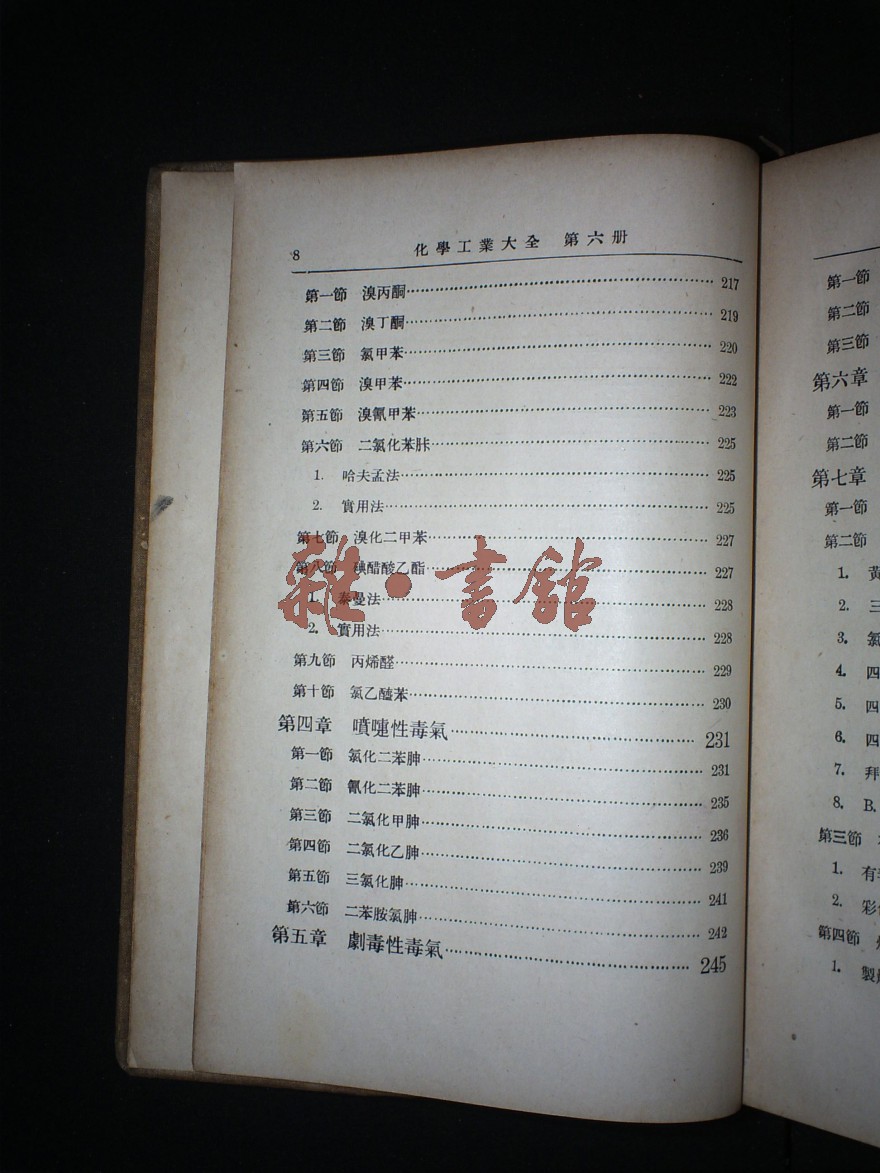 8 化學工業大全 第六册
第一節 溴丙酮 217
第二節 溴丁酮 219
第三節 氯甲苯 220
第四節 溴甲苯 222
第五節 溴氰甲苯 223
第六節 二氯化苯胩 225
1. 哈夫孟法 225
2. 實用法 225
第七節 溴化二甲苯 227
第八節 碘醋酸乙酯 227
1. 泰曼法 228
2. 實用法 228
第九節 丙烯醛 229
第十節 氯乙醯苯 230
第四章 噴嚏性毒氣 231
第一節 氯化二苯胂 231
第二節 氰化二苯胂 235
第三節 二氯化甲胂 236
第四節 二氯化乙胂 239
第五節 三氯化胂 241
第六節 二苯胺氯胂 242
第五章 劇毒性毒氣 245
雜·書館
第一節
第二節
第三節
第六章
第一節
第二節
第七章
第一節
第二節
1. 黃
2. 三
3. 氯
4. 四
5. 四
6. 四
7. 拜
8. B.
第三節
1. 有
2. 彩
第四節
1. 製